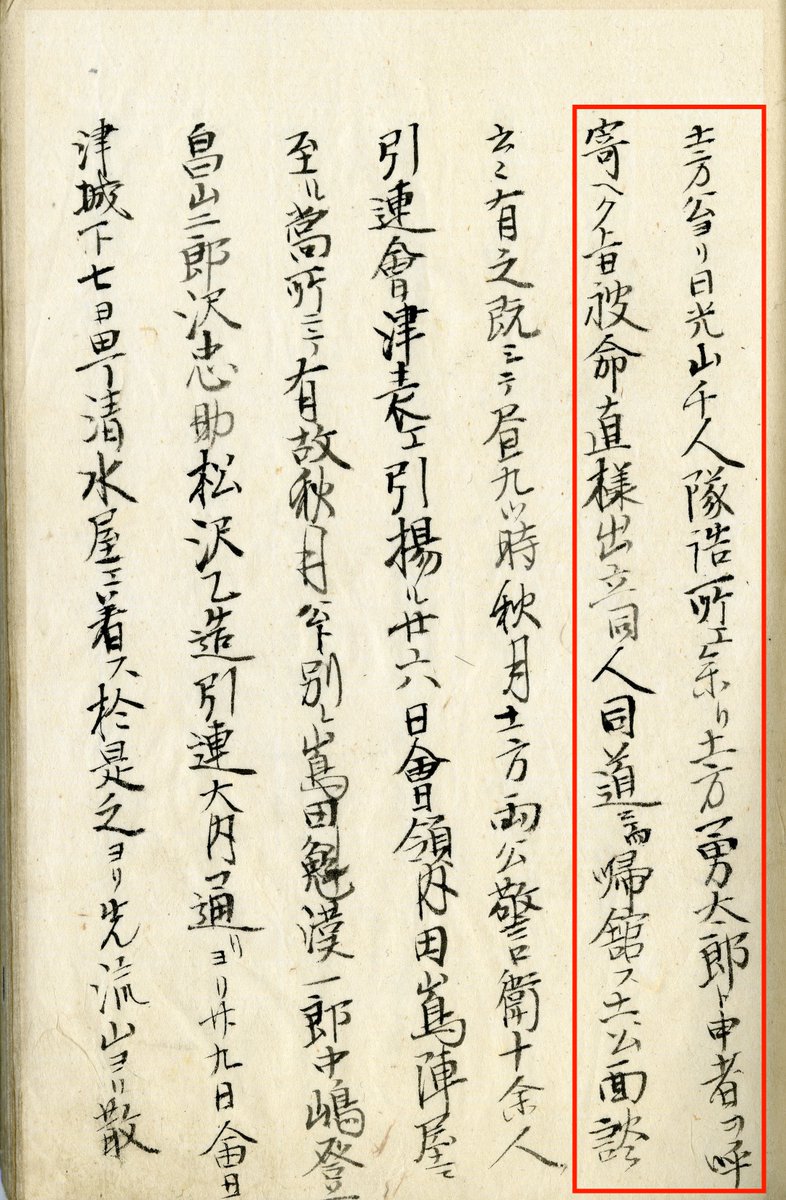 土方公ヨリ日光山千人隊詰所エ参リ土方勇太郎ト申者ヲ呼
寄ヘク旨被命直様出立同人同道ニ而帰舘ス土公面談
云々有之既ニシテ昼九ツ時秋月土方両公警衛十余人
引連會津表エ引揚ル廿六日會領内田嶌陣屋ニ
至ル當所ニテ有故秋月公ト別レ嶌田魁漢一郎中嶋登
畠山二郎沢忠助松沢乙造引連大内ヲ通リヨリ廿九日會
津城下七日町清水屋エ着ス於是之ヨリ先流山ヨリ散